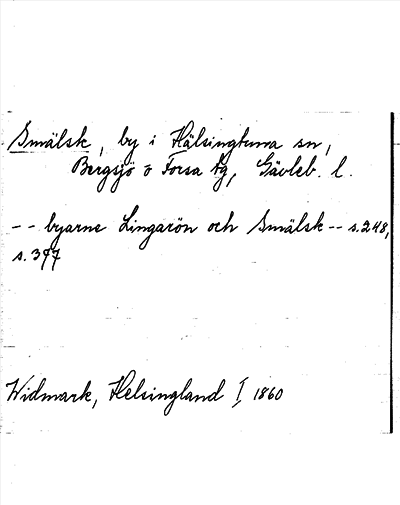 Smälsk, by i Hälsingtuna sn,
Bergsjö o Forsa tg, Gävleb. l.
-- byarne Lingarön och Smälsk -- s. 248,
s. 397
Widmark, Helsingland I 1860